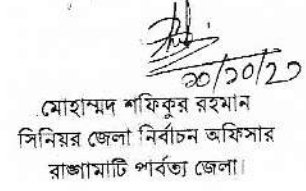 ২০/১০/২০
মোহাম্মদ শফিকুর রহমান
সিনিয়র জেলা নির্বাচন অফিসার
রাঙ্গামাটি পার্বত্য জেলা।